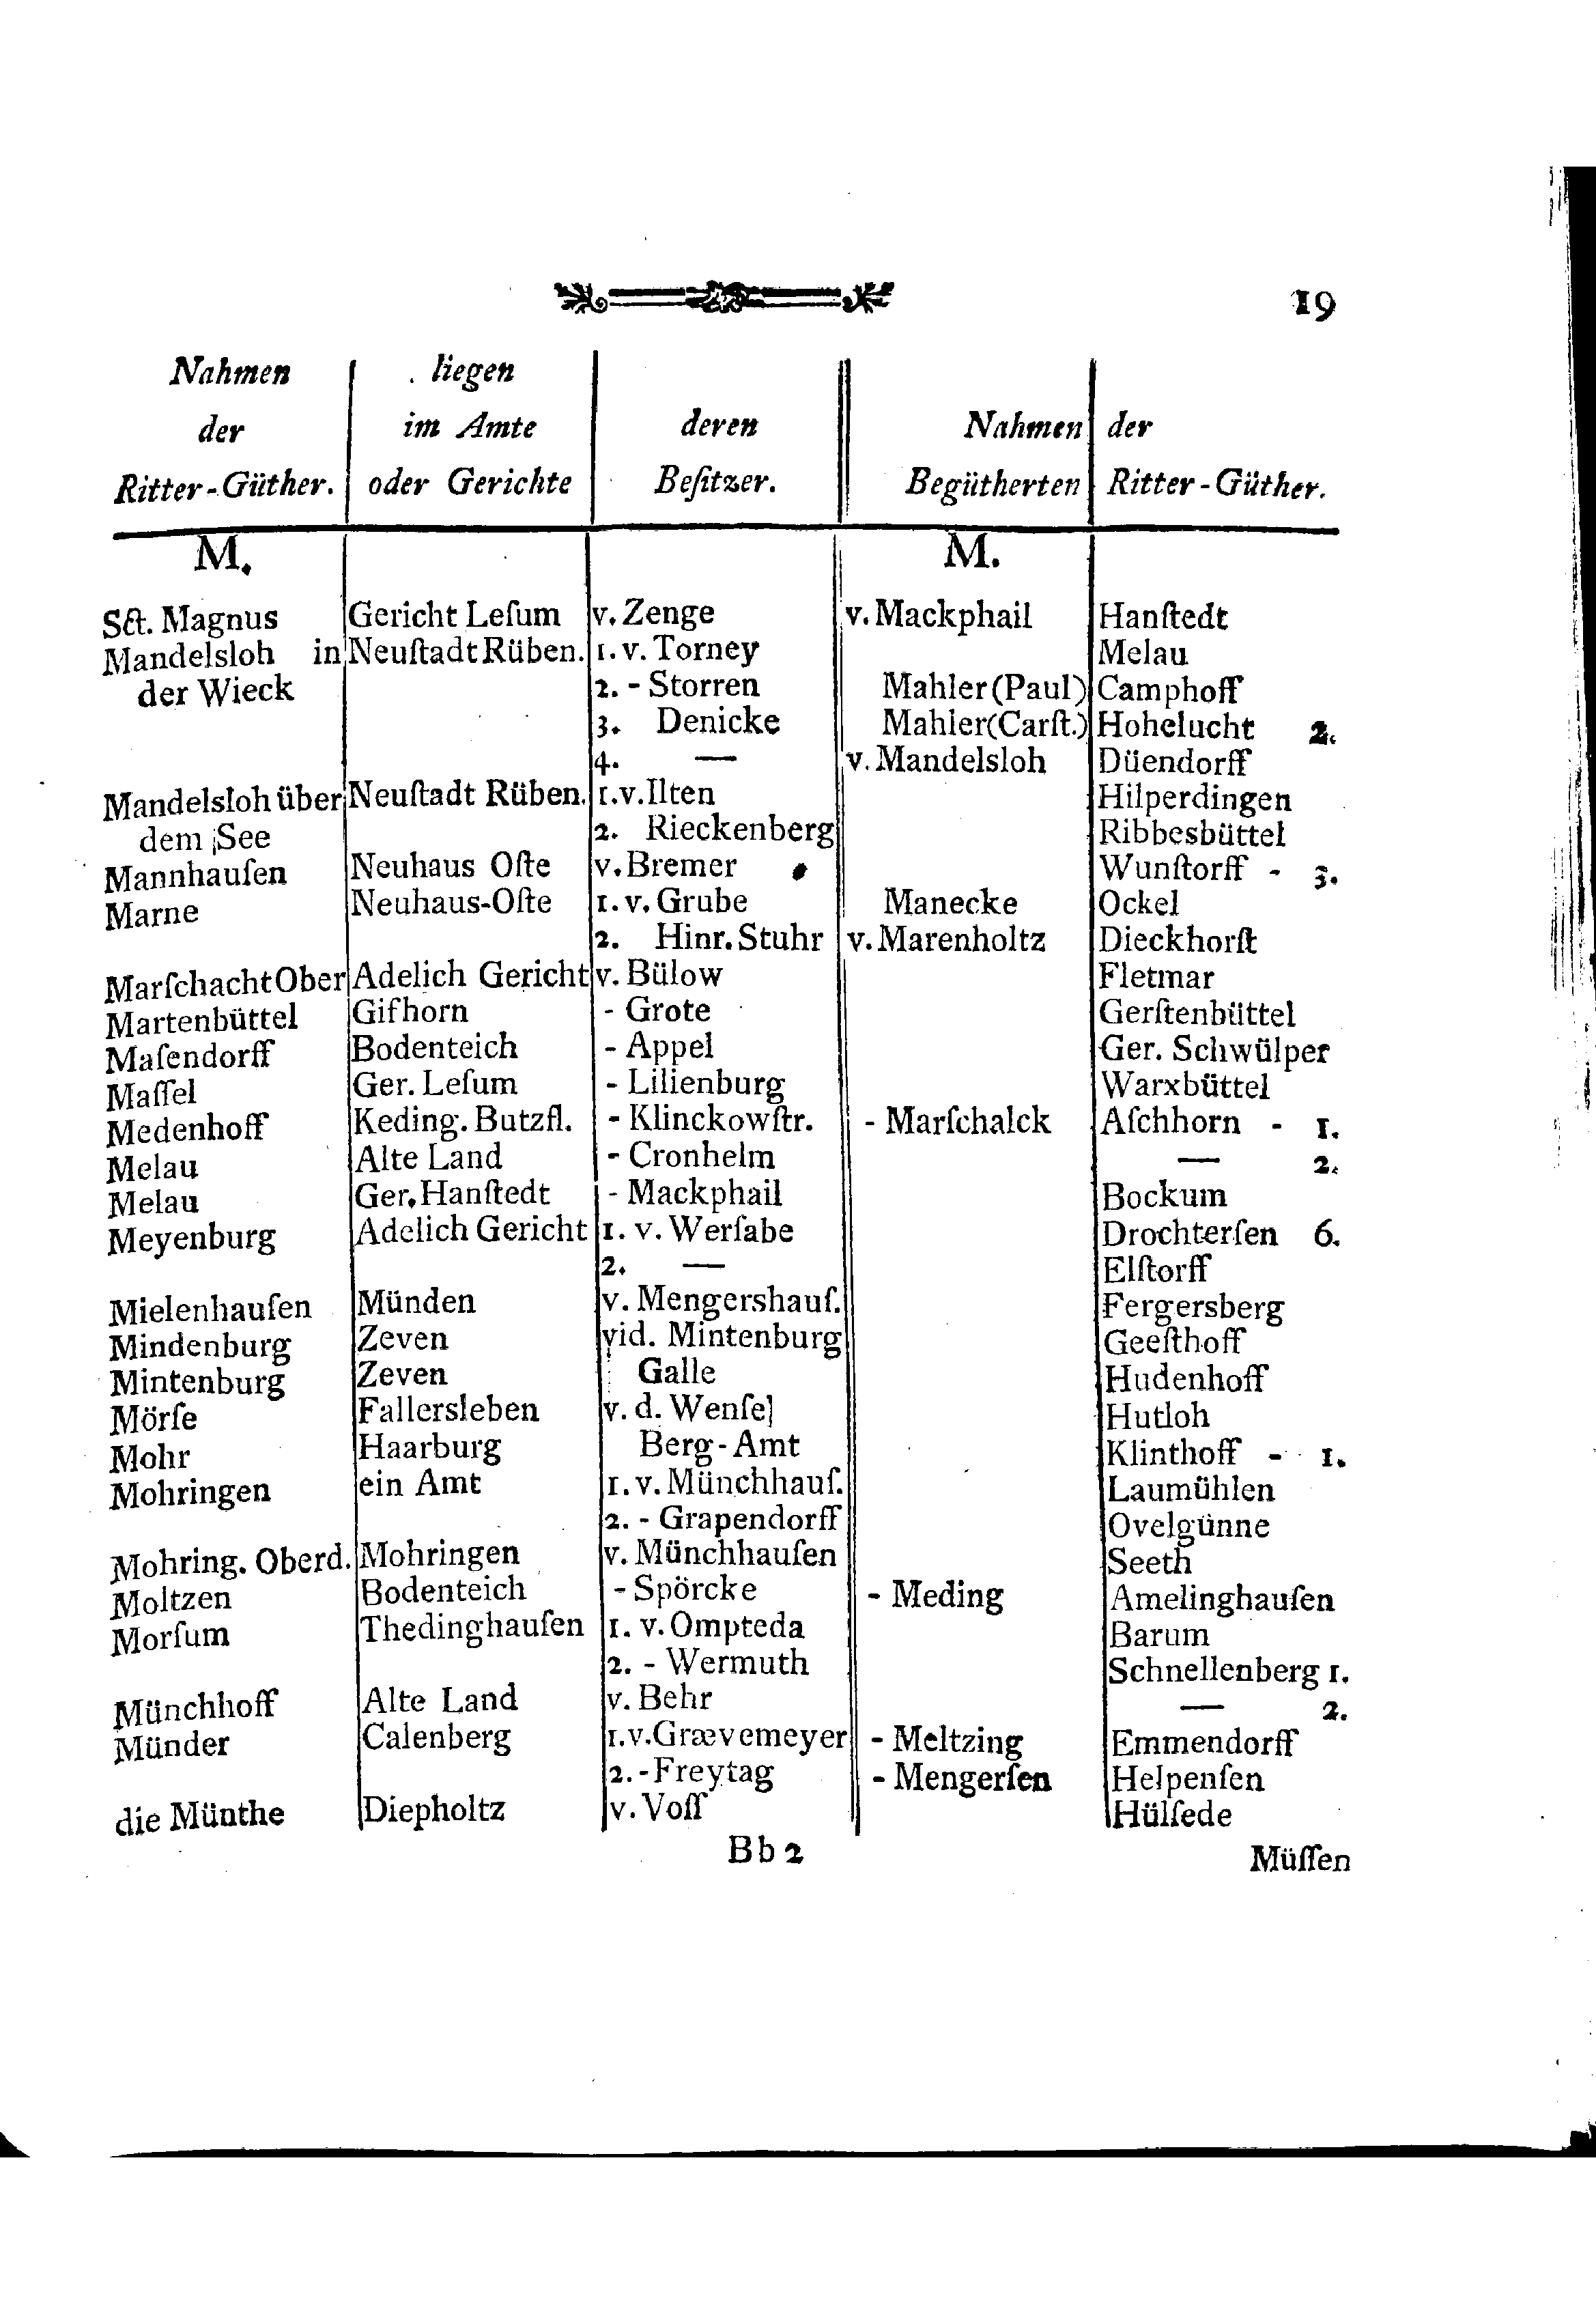 19
Nahmen der Ritter-Güther. | liegen im Amte oder Gerichte | deren Beſitzer. | Nahmen Begütherten | der Ritter-Güther.
M. | | | M. |
Sſt. Magnus | Gericht Leſum | v. Zenge | v. Mackphail | Hanſtedt
Mandelsloh in | Neuſtadt Rüben. | 1. v. Torney | | Melau
der Wieck | | 2. - Storren | Mahler (Paul) | Camphoff
| | 3. Denicke | Mahler (Carſt.) | Hohelucht 2.
| | 4. — | v. Mandelsloh | Düendorff
Mandelsloh über | Neuſtadt Rüben. | 1. v. Ilten | | Hilperdingen
dem See | | 2. Rieckenberg | | Ribbesbüttel
Mannhauſen | Neuhaus Oſte | v. Bremer | | Wunſtorff - 3.
Marne | Neuhaus-Oſte | 1. v. Grube | Manecke | Ockel
| | 2. Hinr. Stuhr | v. Marenholtz | Dieckhorſt
Marſchacht Ober | Adelich Gericht | v. Bülow | | Fletmar
Martenbüttel | Gifhorn | - Grote | | Gerſtenbüttel
Maſendorff | Bodenteich | - Appel | | Ger. Schwülper
Maſſel | Ger. Leſum | - Lilienburg | | Warxbüttel
Medenhoff | Keding. Butzfl. | - Klinckowſtr. | - Marſchalck | Aſchhorn - 1.
Melau | Alte Land | - Cronhelm | | — 2.
Melau | Ger. Hanſtedt | - Mackphail | | Bockum
Meyenburg | Adelich Gericht | 1. v. Werſabe | | Drochterſen 6.
| | 2. — | | Elſtorff
Mielenhauſen | Münden | v. Mengershauſ. | | Fergersberg
Mindenburg | Zeven | vid. Mintenburg | | Geeſthoff
Mintenburg | Zeven | Galle | | Hudenhoff
Mörſe | Fallersleben | v. d. Wenſe | | Hutloh
Mohr | Haarburg | Berg-Amt | | Klinthoff - 1.
Mohringen | ein Amt | 1. v. Münchhauſ. | | Laumühlen
| | 2. - Grapendorff | | Ovelgünne
Mohring. Oberd. | Mohringen | v. Münchhauſen | | Seeth
Moltzen | Bodenteich | - Spörcke | - Meding | Amelinghauſen
Morſum | Thedinghauſen | 1. v. Ompteda | | Barum
| | 2. - Wermuth | | Schnellenberg 1.
Münchhoff | Alte Land | v. Behr | | — 2.
Münder | Calenberg | 1. v. Grævemeyer | - Meltzing | Emmendorff
| | 2. - Freytag | - Mengerſen | Helpenſen
die Münthe | Diepholtz | v. Voſſ | | Hülſede
Bb 2
Müſſen